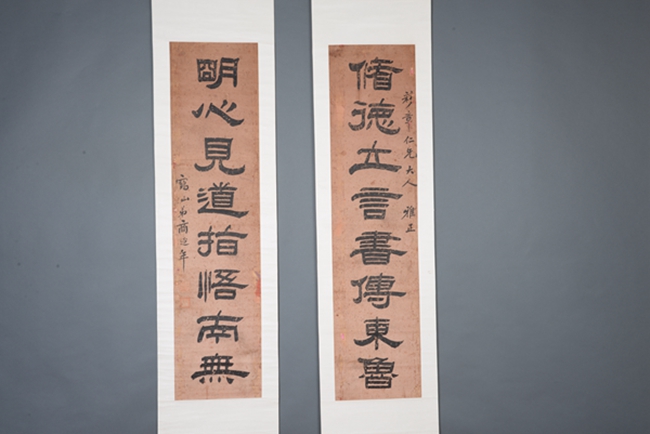 彩章仁兄大人 雅正
脩德立言書傳東魯
明心見道指悟南無
山弟商年